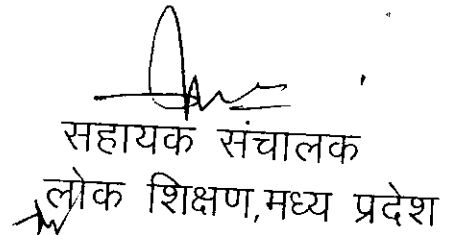 सहायक संचालक
लोक शिक्षण,मध्य प्रदेश